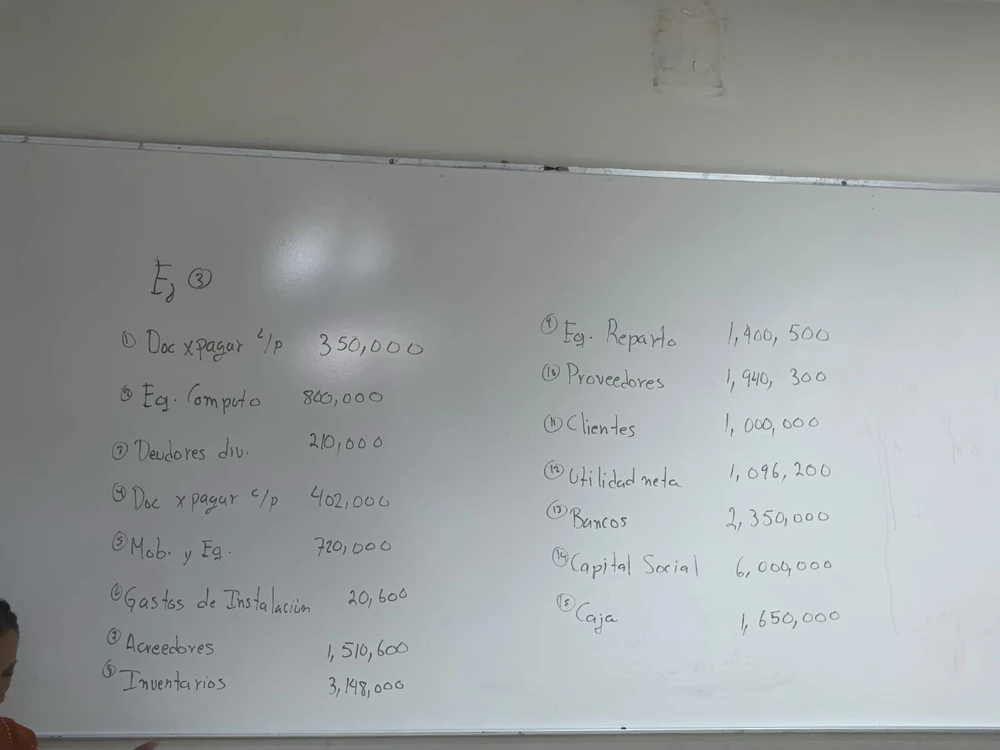 Ej ③
① Doc x pagar L/p 350,000
② Eq. Computo 800,000
③ Deudores div. 210,000
④ Doc x pagar c/p 402,000
⑤ Mob. y Eq. 720,000
⑥ Gastos de Instalación 20,600
⑦ Acreedores 1,510,600
⑧ Inventarios 3,148,000
⑨ Eq. Reparto 1,400,500
⑩ Proveedores 1,940,300
⑪ Clientes 1,000,000
⑫ Utilidad neta 1,096,200
⑬ Bancos 2,350,000
⑭ Capital Social 6,000,000
⑮ Caja 1,650,000